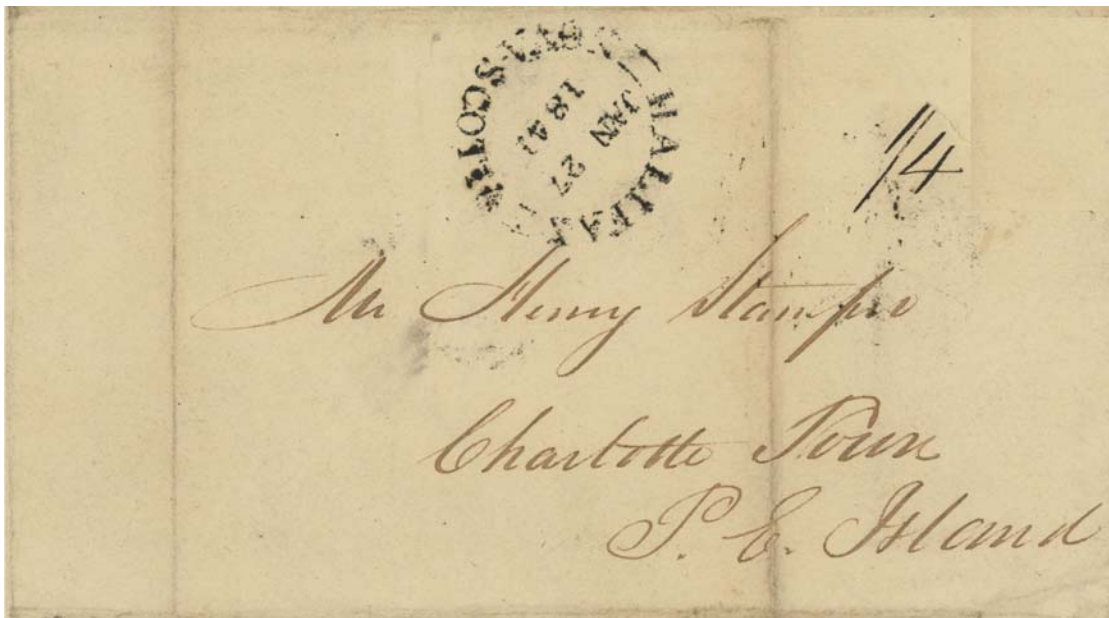 HALIFAX
NOVA·SCOTIA
JAN 27
1841
1/4
Mr Henry Stamper
Charlotte Town
P. E. Island